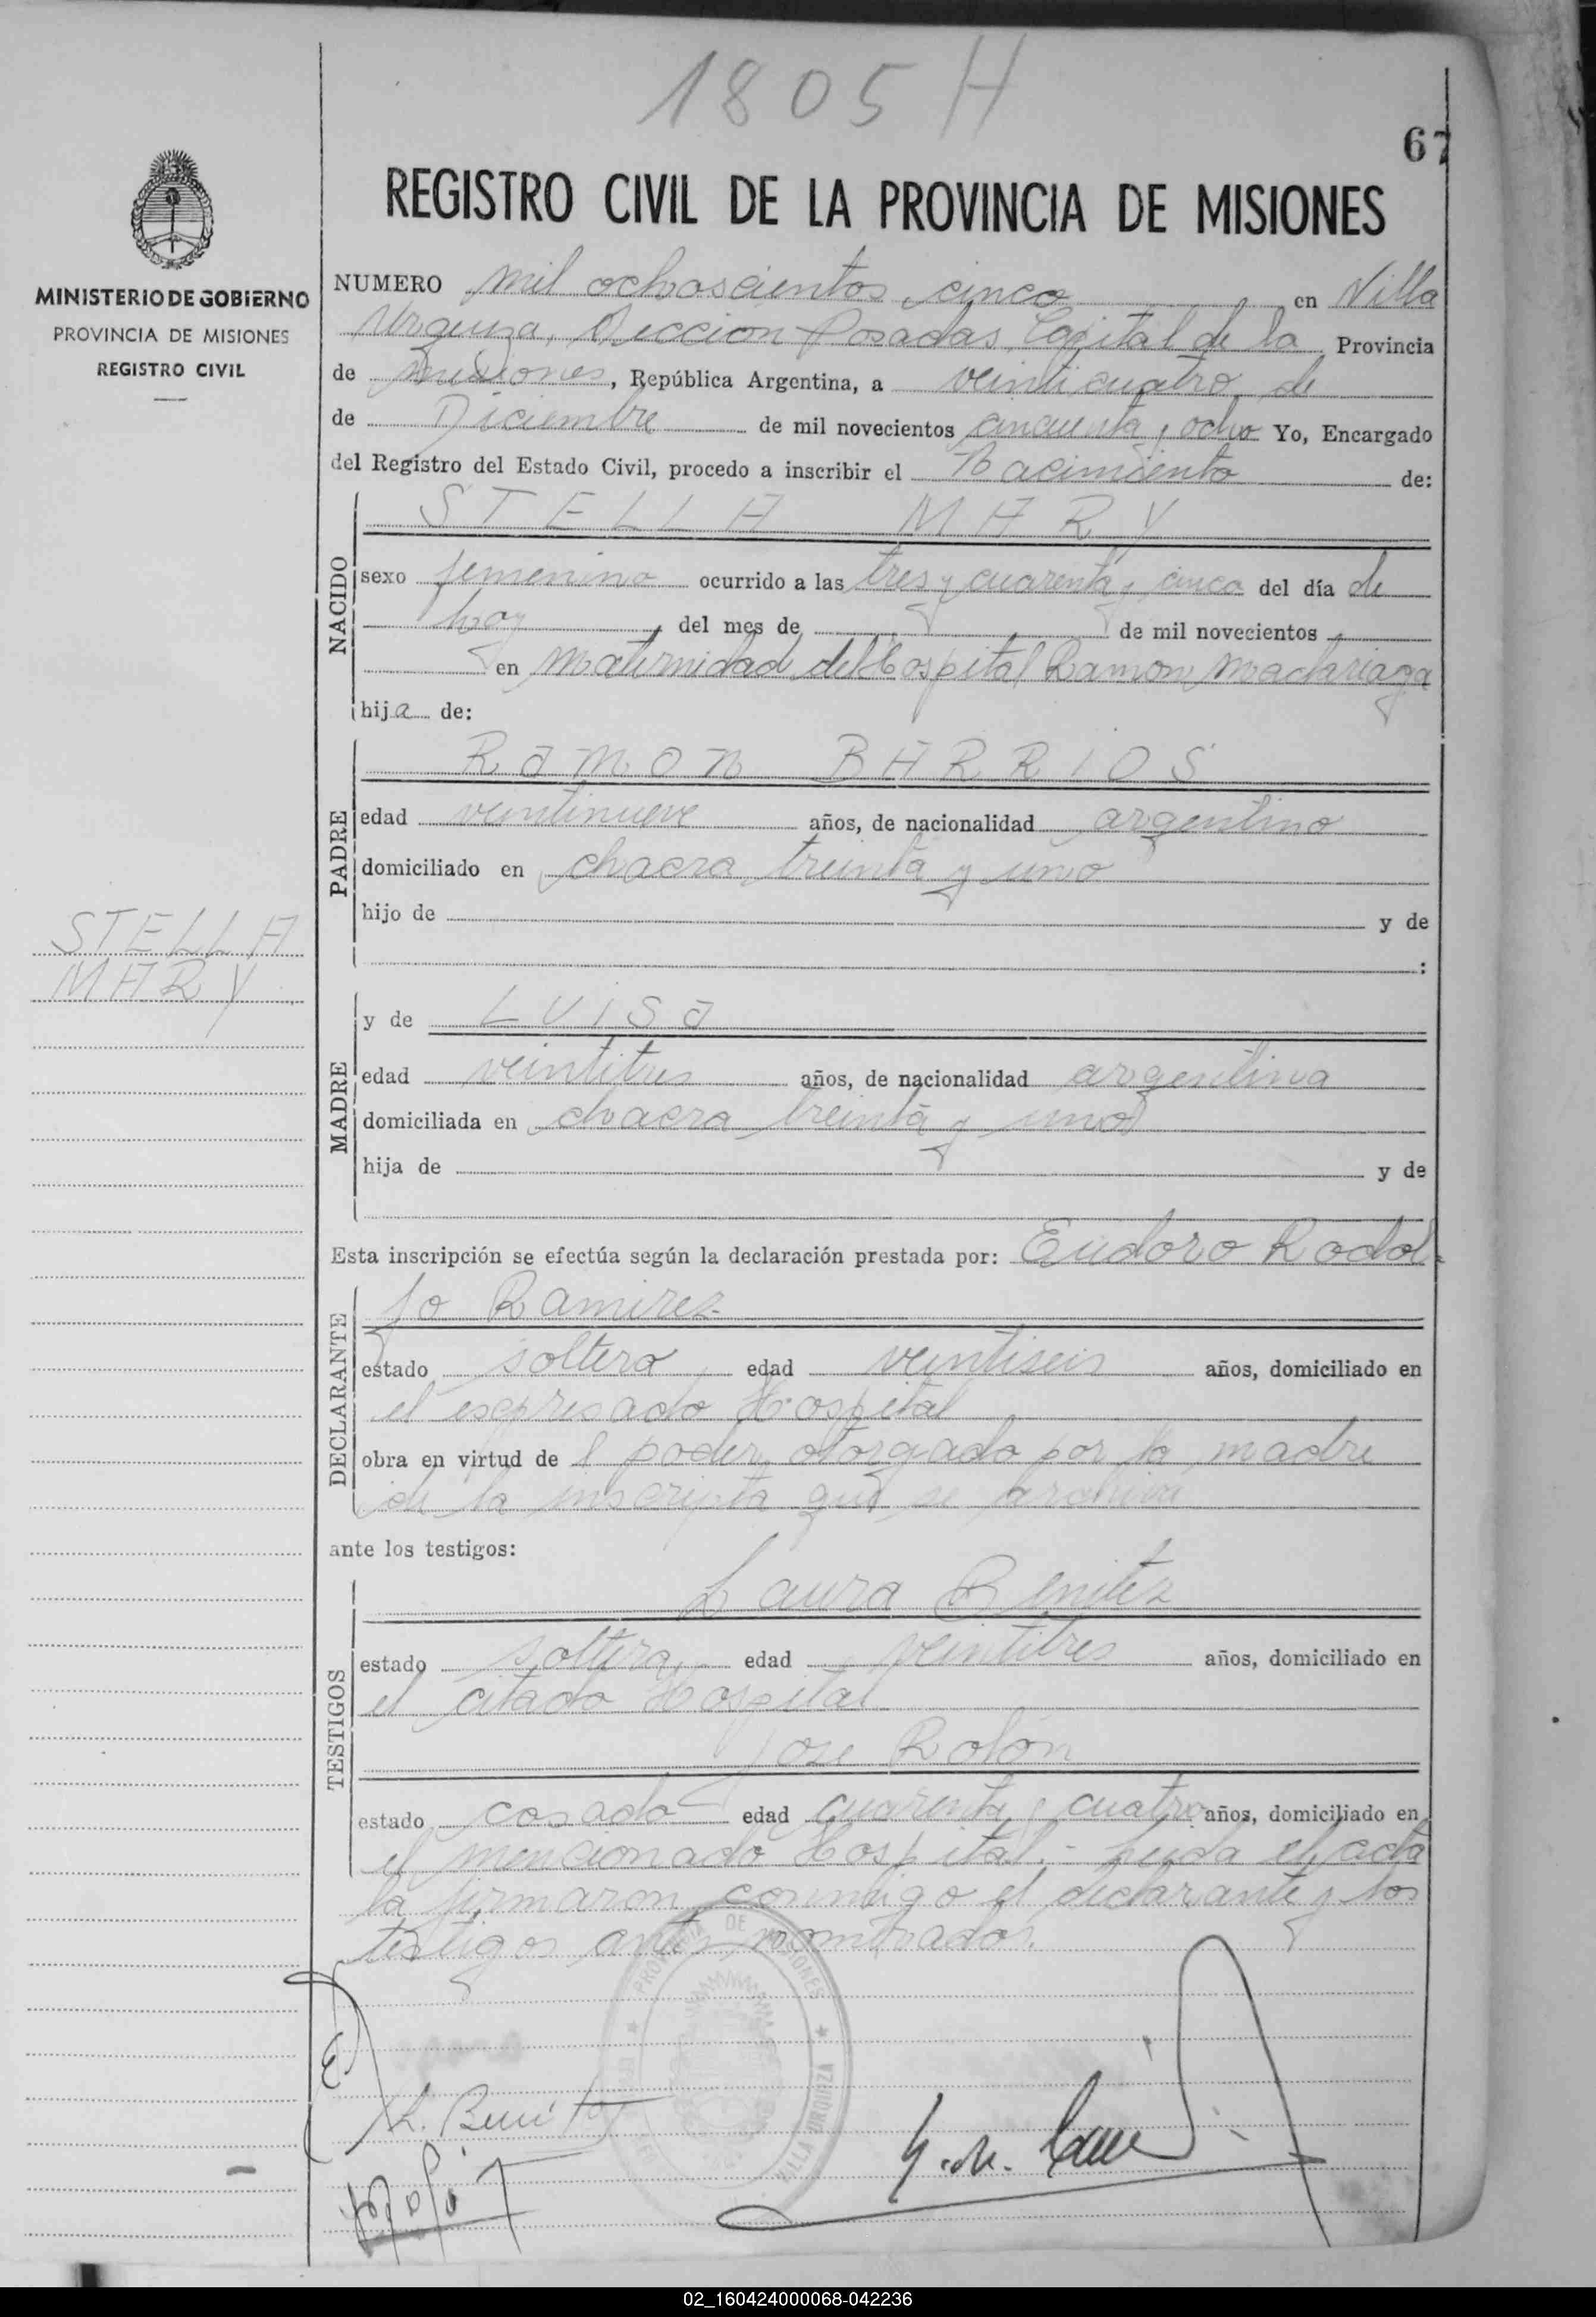 1805 H
67
MINISTERIO DE GOBIERNO
PROVINCIA DE MISIONES
REGISTRO CIVIL
REGISTRO CIVIL DE LA PROVINCIA DE MISIONES
NUMERO mil ochoscientos cinco en Villa
Urquiza, Seccion Posadas Capital de la Provincia
de Misiones, República Argentina, a veinticuatro de
de Diciembre de mil novecientos cincuenta y ocho Yo, Encargado
del Registro del Estado Civil, procedo a inscribir el Nacimiento de:
NACIDO
STELLA MARY
sexo femenino ocurrido a las tres y cuarenta y cinco del día de
hoy del mes de de mil novecientos
en Maternidad del Hospital Ramon Madariaga
hija de:
PADRE
RAMON BARRIOS
edad veintinueve años, de nacionalidad argentino
domiciliado en chacra treinta y uno
hijo de y de
:
STELLA
MARY
MADRE
y de LUISA
edad veintitres años, de nacionalidad argentina
domiciliada en chacra treinta y uno
hija de y de
Esta inscripción se efectúa según la declaración prestada por: Eudoro Rodol-
DECLARANTE
fo Ramirez
estado soltero edad veintiseis años, domiciliado en
el espresado Hospital
obra en virtud de l poder otorgado por la madre
de la inscripta que se archiva
ante los testigos:
TESTIGOS
Laura Benitez
estado soltera edad veintitres años, domiciliado en
el citado Hospital
Jose Rolon
estado casado edad cuarenta y cuatro años, domiciliado en
el mencionado Hospital.- Leida el acta
la firmaron conmigo el declarante y los
testigos antes nombrados.
PROVINCIA DE MISIONES
VILLA URQUIZA
L. Benitez
02_160424000068-042236